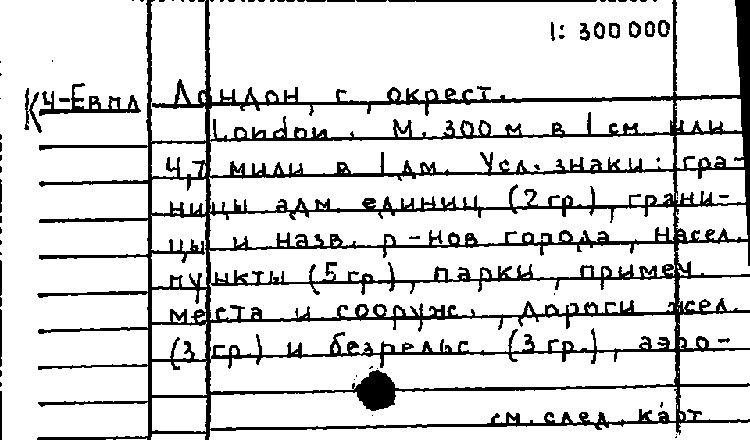 1: 300 000
К4-Евпл Лондон, г., окрест.
London. М. 300 м в 1 см или
4,7 мили в 1 дм. Усл. знаки: гра-
ницы адм. единиц (2 гр.), грани-
цы и назв. р-нов города, насел.
пункты (5 гр.), парки, примеч.
места и сооруж., дороги жел.
(3 гр.) и безрельс. (3 гр.), аэро-
см. след. карт